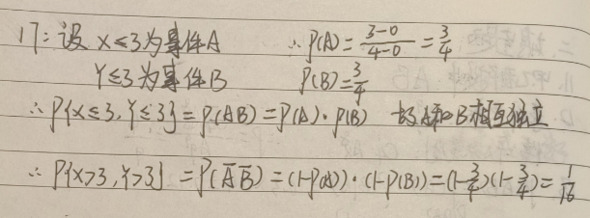 17: 设 X≤3为事件A ∴ P(A) = \frac{3-0}{4-0} = \frac{3}{4}
Y≤3为事件B P(B) = \frac{3}{4}
∴ P{X≤3, Y≤3} = P(AB) = P(A)·P(B) 故A和B相互独立
∴ P{X>3, Y>3} = P(\overline{A}\,\overline{B}) = (1-P(A))·(1-P(B)) = (1-\frac{3}{4})(1-\frac{3}{4}) = \frac{1}{16}